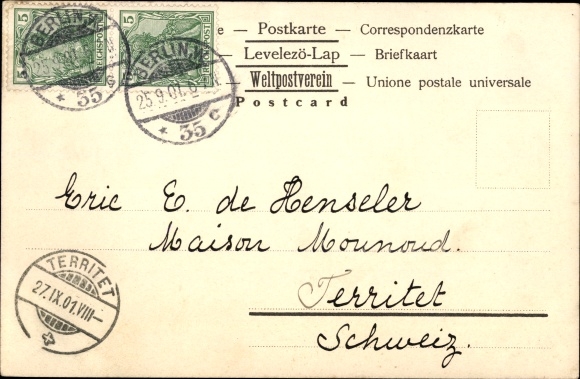 5 5
REICHSPOST REICHSPOST
BERLIN.W. BERLIN.W.
25.9.01. 25.9.01.
* 35 c * 35 c
e — Postkarte — Correspondenzkarte
— Levelező-Lap — Briefkaart
— Weltpostverein — Unione postale universale
Postcard
Eric E. de Henseler
Maison Mounoud.
Territet
Schweiz.
TERRITET
27.IX.01.VIII—